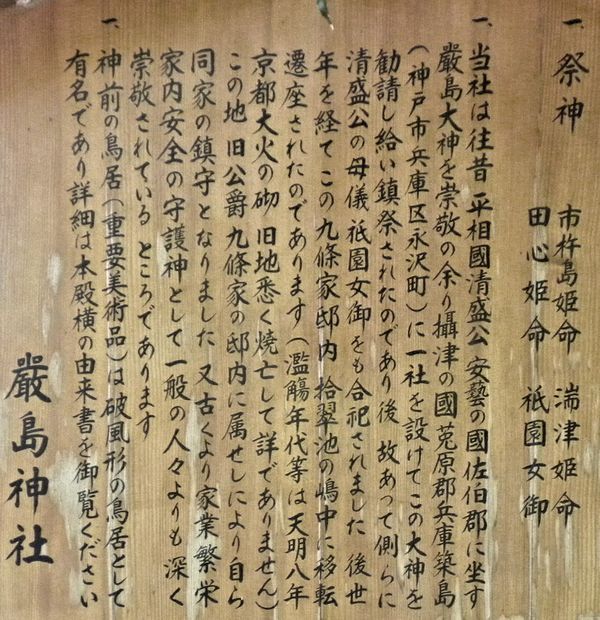 一、祭神 市杵島姫命 湍津姫命
田心姫命 祇園女御
一、当社は往昔 平相國清盛公 安藝の國佐伯郡に坐す
嚴島大神を崇敬の余り攝津の國菟原郡兵庫築島
(神戸市兵庫区永沢町)に一社を設けてこの大神を
勧請し給い鎮祭されたのであり後 故あって側らに
清盛公の母儀祇園女御をも合祀されました 後世
年を経てこの九條家邸内 拾翠池の嶋中に移転
遷座されたのであります(濫觴年代等は天明八年
京都大火の砌 旧地悉く焼亡して詳でありません)
この地 旧公爵九條家の邸内に属せしにより自ら
同家の鎮守となりました 又古くより家業繁栄
家内安全の守護神として一般の人々よりも深く
崇敬されている ところであります
一、神前の鳥居(重要美術品)は破風形の鳥居として
有名であり詳細は本殿横の由来書を御覧ください
嚴島神社